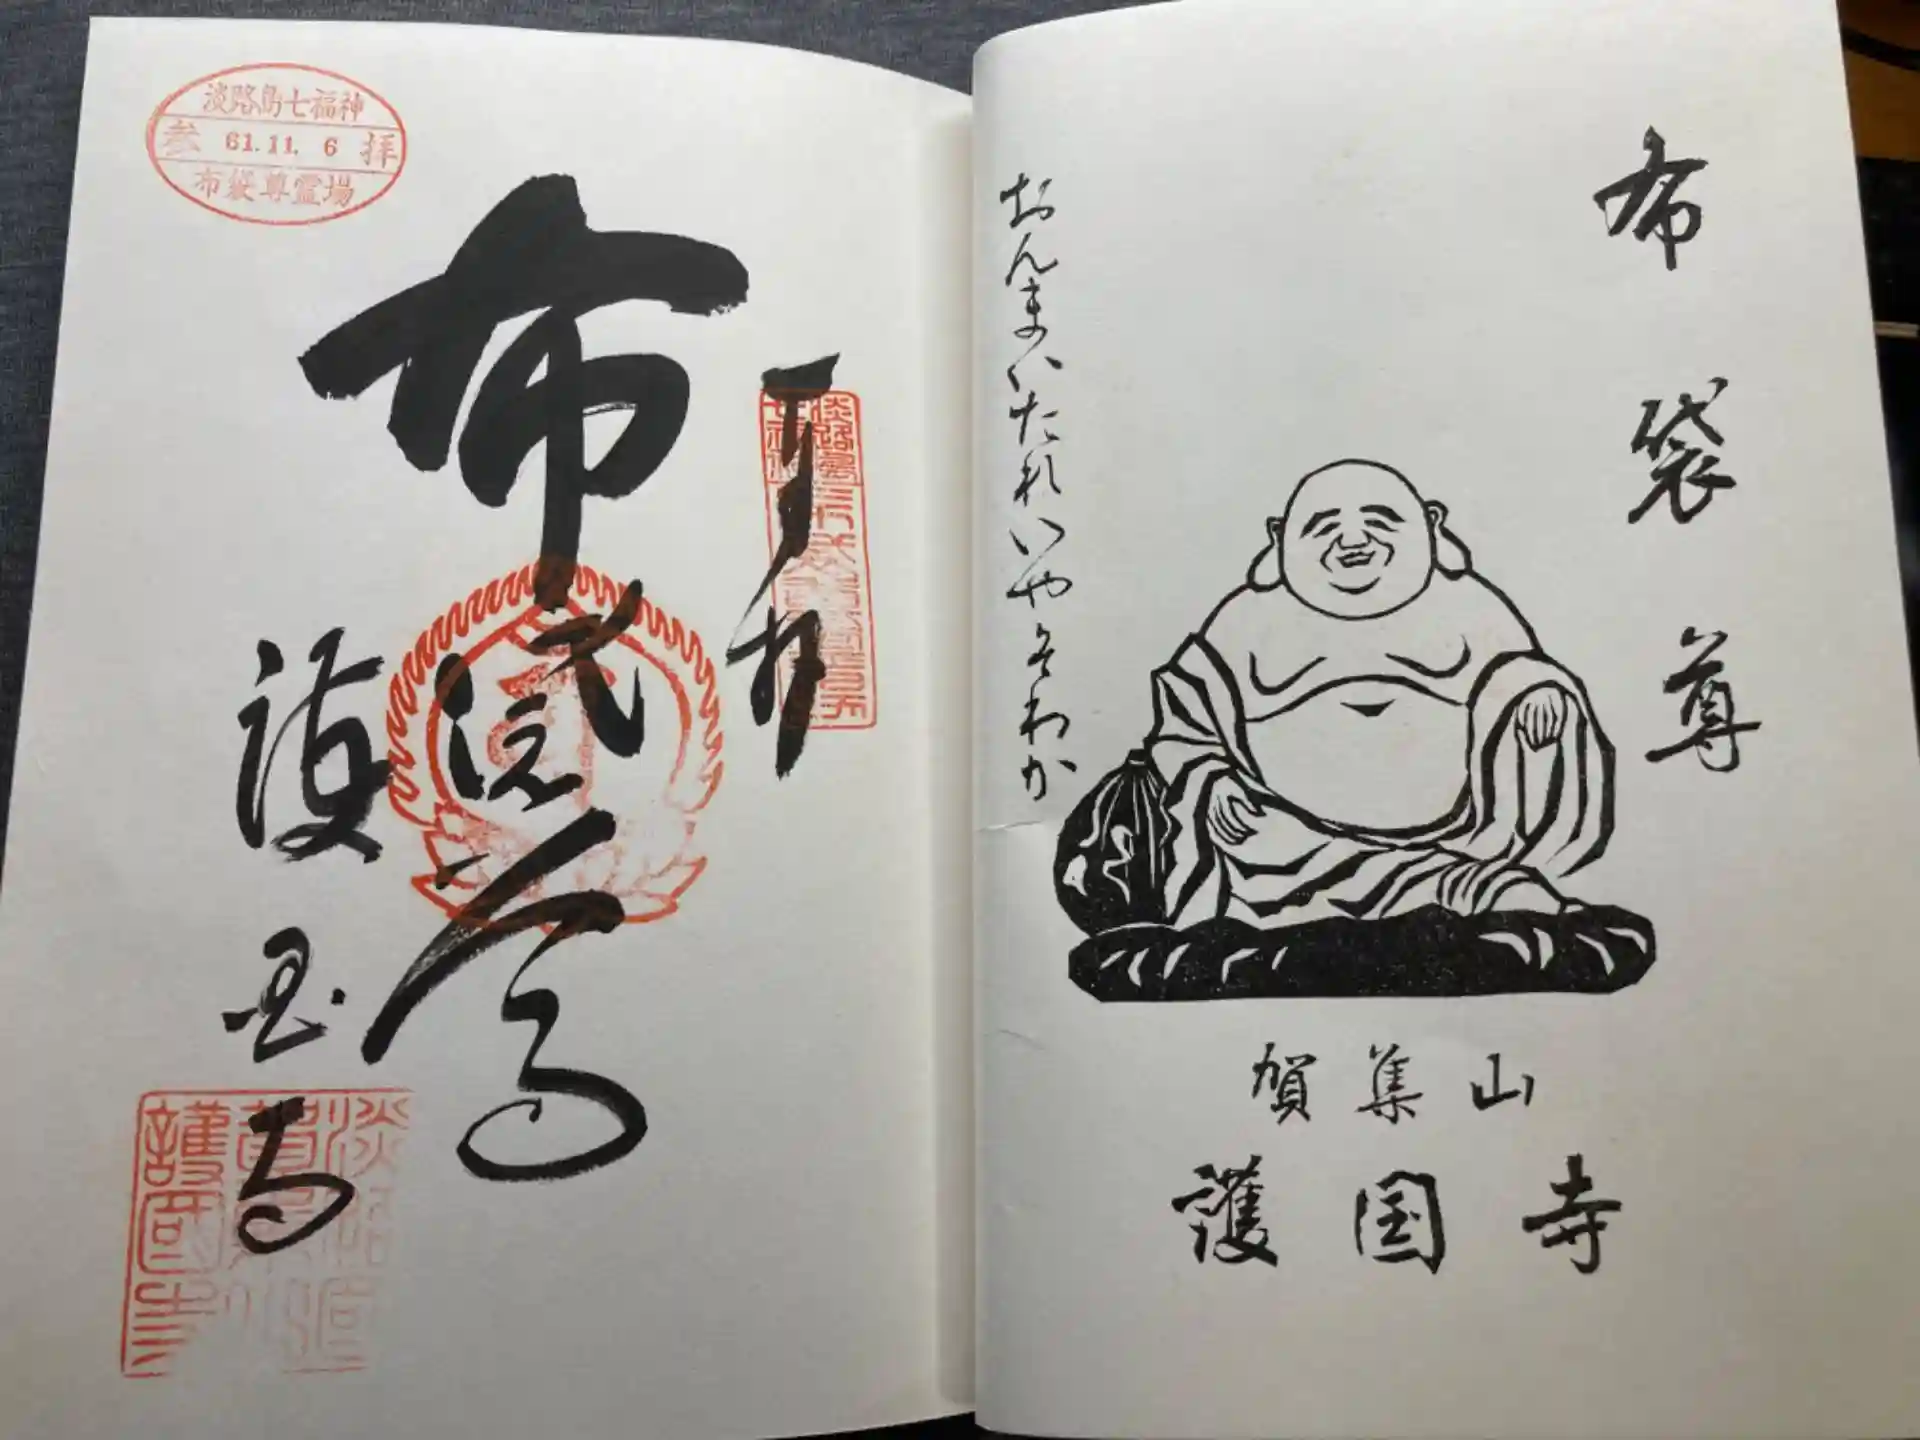 布袋尊
おんまいたれいやそわか
賀集山
護国寺
淡路島七福神
参 61.11. 6 拝
布袋尊霊場
奉拝
布袋尊
護国寺